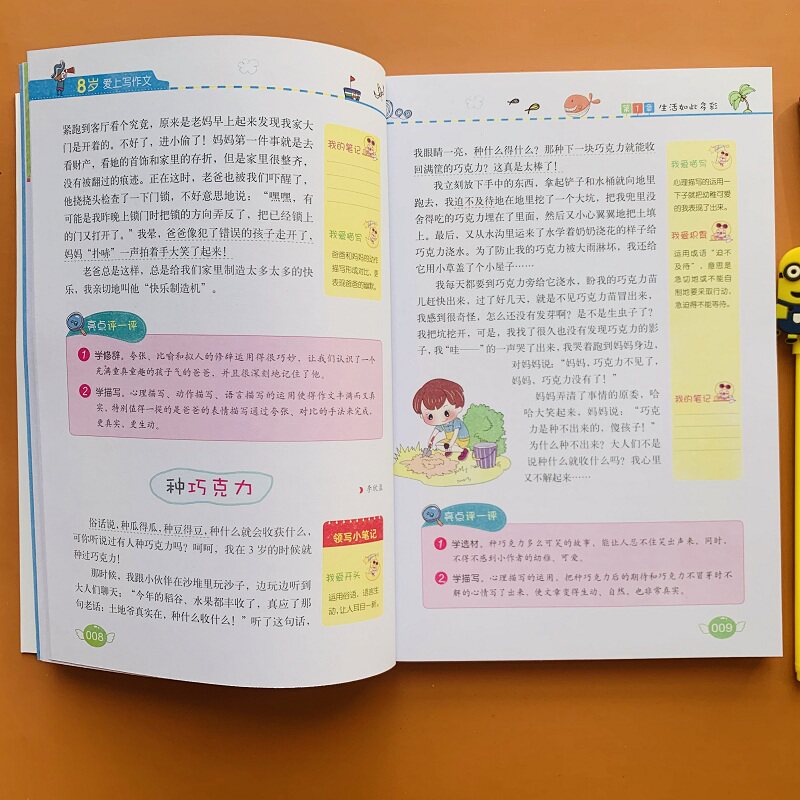 8岁 爱上写作文
紧跑到客厅看个究竟,原来是老妈早上起来发现我家大
门是开着的。不好了,进小偷了!妈妈第一件事就是去
看财产,看她的首饰和家里的存折,但是家里很整齐,
没有被翻过的痕迹。正在这时,老爸也被我们吓醒了,
他挠挠头检查了一下门锁,不好意思地说:“嘿嘿,有
可能是我昨晚上锁门时把锁的方向弄反了,把已经锁上
的门又打开了。”我晕,爸爸像犯了错误的孩子走开了,
妈妈“扑哧”一声拍着手大笑了起来!
老爸总是这样,总是给我们家里制造太多太多的快
乐,我亲切地叫他“快乐制造机”。
我的笔记
我爱描写
爸爸和妈妈的动作
描写形成对比,更
表现爸爸的幽默。
亮点评一评
1 学修辞。夸张、比喻和拟人的修辞运用得很巧妙,让我们认识了一个
充满童真童趣的孩子气的爸爸,并且很深刻地记住了他。
2 学描写。心理描写、动作描写、语言描写的运用使得作文丰满而又真
实,特别值得一提的是爸爸的表情描写通过夸张、对比的手法来完成,
更真实、更生动。
种巧克力
李欣蓝
俗话说,种瓜得瓜,种豆得豆,种什么就会收获什么,
可你听说过有人种巧克力吗?呵呵,我在3岁的时候就
种过巧克力!
那时候,我跟小伙伴在沙堆里玩沙子,边玩边听到
大人们聊天:“今年的稻谷、水果都丰收了,真应了那
句老话:土地爷真实在,种什么收什么!”听了这句话,
领写小笔记
我爱开头
运用俗语,语言生
动,让人耳目一新。
008
第1章 生活如此多彩
我眼睛一亮,种什么得什么?那种下一块巧克力就能收
回满筐的巧克力?这真是太棒了!
我立刻放下手中的东西,拿起铲子和水桶就向地里
跑去,我迫不及待地在地里挖了一个大坑,把我兜里没
舍得吃的巧克力埋在了里面,然后又小心翼翼地把土填
上。最后,又从水沟里运来了水学着奶奶浇花的样子给
巧克力浇水。为了防止我的巧克力被大雨淋坏,我还给
它用小草盖了个小屋子……
我每天都要到巧克力旁给它浇水,盼我的巧克力苗
儿赶快出来,过了好几天,就是不见巧克力苗冒出来,
我感到很奇怪,怎么还没有发芽啊?是不是生虫子了?
我把坑挖开,可是,我找了很久也没有发现巧克力的影
子,我“哇——”的一声哭了出来,我哭着跑到妈妈身边,
对妈妈说:“妈妈,巧克力不见了,
妈妈,巧克力没有了!”
妈妈弄清了事情的原委,哈
哈大笑起来,妈妈说:“巧克力
是种不出来的,傻孩子!”
为什么种不出来?大人们不是
说种什么就收什么吗?我心里
又不解起来……
我爱描写
心理描写的运用一
下子就把幼稚可爱
的我表现了出来。
我爱积累
运用成语“迫不
及待”,意思是
急切地或不能自
制地要采取行动,
急迫得不能等待。
我的笔记
亮点评一评
1 学选材。种巧克力多么可笑的故事,能让人忍不住笑出声来。同时,
不得不感到小作者的幼稚、可爱。
2 学描写。心理描写的运用,把种巧克力后的期待和巧克力不冒芽时不
解的心情写了出来,使文章变得生动、自然,也非常真实。
009